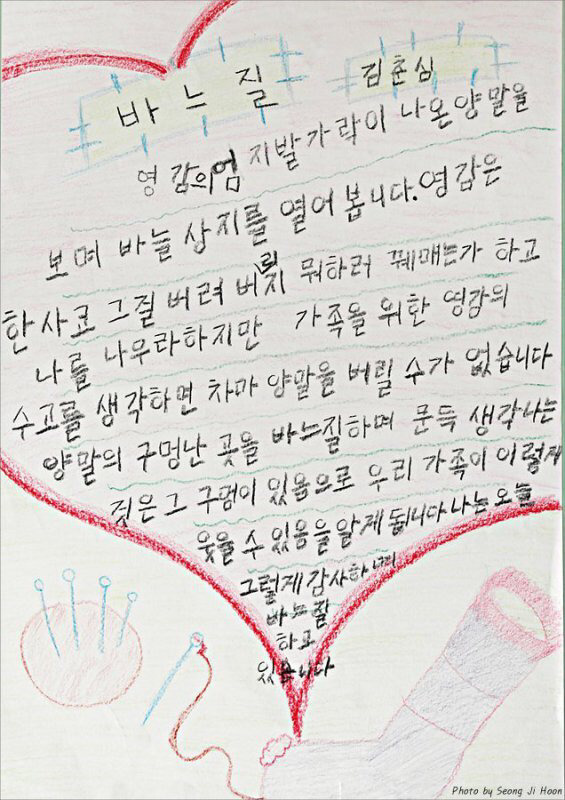 바느질
김춘심
영감의 엄지발가락이 나온양말을
보며 바늘 상지를 열어 봅니다. 영감은
한사코 그질 버려 버리지 뭐하러 꿰매는가 하고
나를 나우라하지만 가족을 위한 영감의
수고를 생각하면 차마 양말을 버릴 수가 없습니다
양말의 구멍난 곳을 바느질하며 문득 생각나는
것은 그 구멍이 있음으로 우리 가족이 이렇게
웃을 수 있음을 알게 됩니다 나는 오늘
그렇게 감사하며
바느질
하고
있습니다
Photo by Seong Ji Hoon